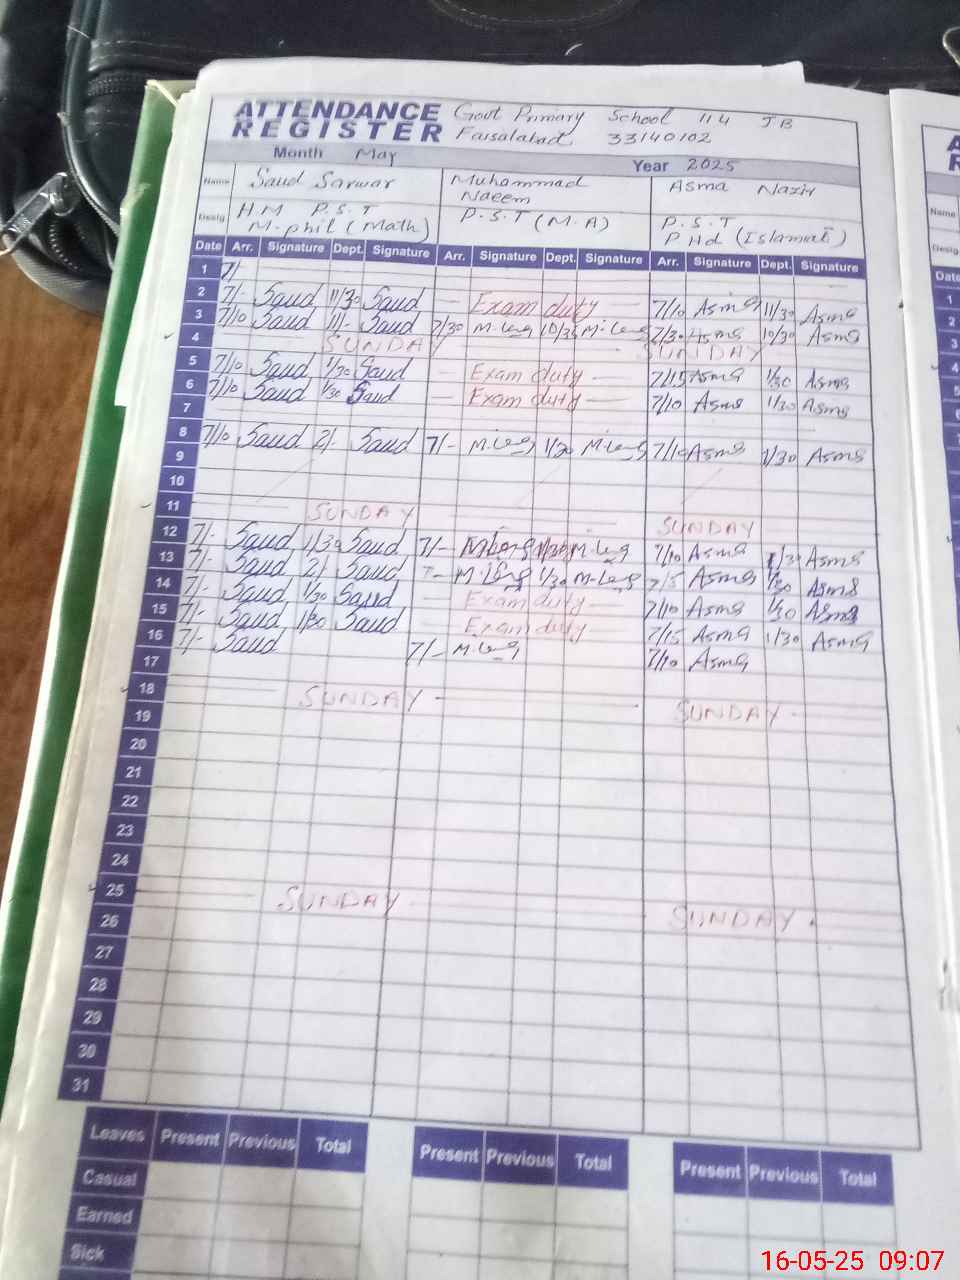 ATTENDANCE REGISTER Govt Primary School 114 JB
Faisalabad 33140102
Month May Year 2025
Name Saud Sarwar Muhammad Naeem Asma Nazir
Desig H.M P.S.T M-phil (Math) P.S.T (M.A) P.S.T P.Hd (Islamiat)
Date Arr. Signature Dept. Signature Arr. Signature Dept. Signature Arr. Signature Dept. Signature
1 7/-
2 7/- Saud 11/30 Saud Exam duty 7/10 Asma 11/30 Asma
3 7/10 Saud 11/- Saud 7/30 10/35 7/30 Asma 10/30 Asma
4 SUNDAY SUNDAY
5 7/10 Saud 1/30 Saud Exam duty 7/15 Asma 1/30 Asma
6 7/10 Saud 1/30 Saud Exam duty 7/10 Asma 1/30 Asma
7
8 7/10 Saud 2/- Saud 7/- 1/30 7/10 Asma 1/30 Asma
9
10
11 SUNDAY SUNDAY
12 7/- Saud 1/30 Saud 7/- 1/30 7/10 Asma 1/30 Asma
13 7/- Saud 2/- Saud 7- 1/30 7/5 Asma 1/30 Asma
14 7/- Saud 1/30 Saud Exam duty 7/10 Asma 1/30 Asma
15 7/- Saud 1/30 Saud Exam duty 7/15 Asma 1/30 Asma
16 7/- Saud 7/- 7/10 Asma
17
18 SUNDAY SUNDAY
19
20
21
22
23
24
25 SUNDAY SUNDAY
26
27
28
29
30
31
Leaves Present Previous Total Present Previous Total Present Previous Total
Casual
Earned
Sick
Name
Desig
Date
1
2
3
4
5
16-05-25 09:07